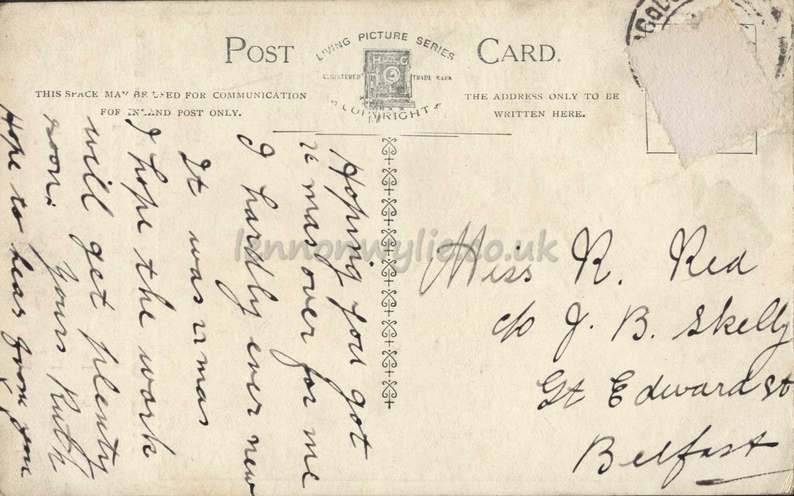 POST CARD.
LIVING PICTURE SERIES
REGISTERED TRADE MARK
COPYRIGHT
THIS SPACE MAY BE USED FOR COMMUNICATION
FOR INLAND POST ONLY.
THE ADDRESS ONLY TO BE
WRITTEN HERE.
Hoping you got
mas over for me
I hardly ever new
It was mas
I hope the work
will get plenty
soon.
Yours Ruth
Hope to hear from you
Miss R. Rea
c/o J. B. Skelly
Gt Edward St
Belfast
lennonwylie.co.uk